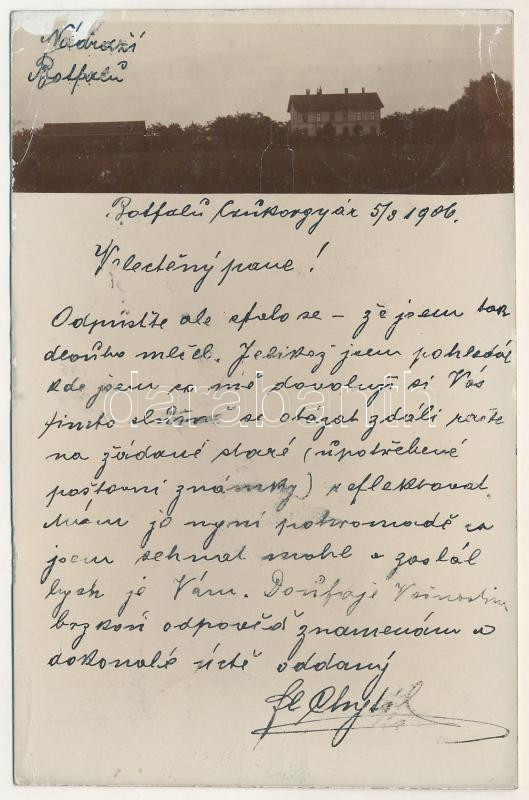 Nádraží
Botfalů
Botfalů Czukorgyár 5/8 1906.
Velectěný pane!
Odpusťte ale stalo se – že jsem tak
dlouho mlčel. Jelikož jsem pohledal
kde jsem co mě dovoluji si Vás
tímto slušně se otázat zdali
na žádané staré (upotřebené
poštovní známky) reflektovat.
Mám je nyní pohromadě co
jsem sehnat mohl a zaslal
bych je Vám. Doufaje
brzkou odpověď znamenám v
dokonalé úctě oddaný
darabanth